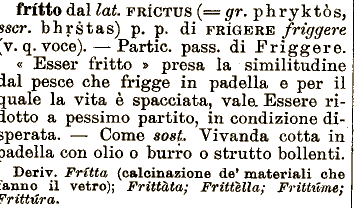 frítto dal lat. FRÍCTUS (= gr. phryktòs,
sscr. bhṛṡtas) p. p. di FRÍGERE friggere
(v. q. voce). — Partic. pass. di Friggere.
« Esser fritto » presa la similitudine
dal pesce che frigge in padella e per il
quale la vita è spacciata, vale. Essere ri-
dotto a pessimo partito, in condizione di-
sperata. — Come sost. Vivanda cotta in
padella con olio o burro o strutto bollenti.
Deriv. Frítta (calcinazione de' materiali che
fanno il vetro); Frittàta; Frittèlla; Frittúme;
Frittúra.